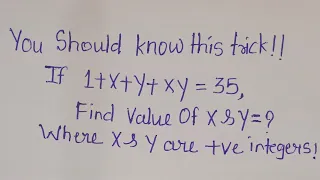 You Should know this trick!!
If 1+X+Y+XY = 35,
Find Value Of X & Y=?
Where X & Y are +ve integers!